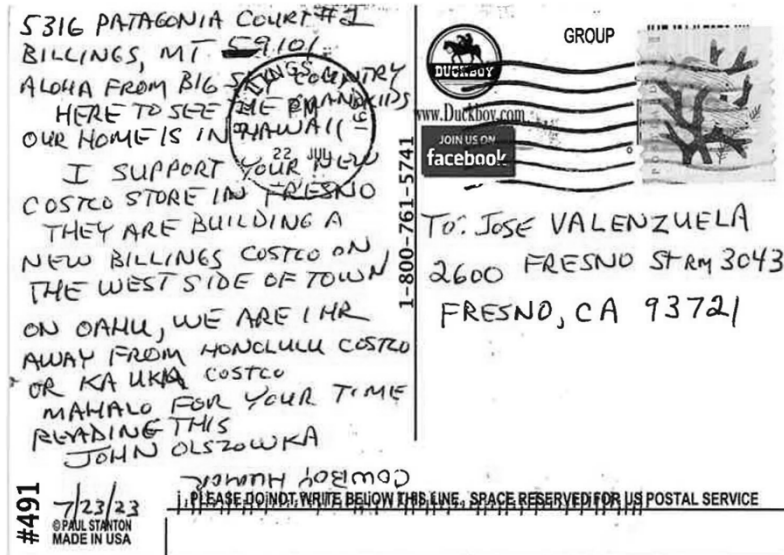 5316 PATAGONIA COURT #1
BILLINGS, MT 59101
ALOHA FROM BIG SKY COUNTRY
HERE TO SEE THE GRANDKIDS
OUR HOME IS IN HAWAII
I SUPPORT YOUR NEW
COSTCO STORE IN FRESNO
THEY ARE BUILDING A
NEW BILLINGS COSTCO ON
THE WEST SIDE OF TOWN
ON OAHU, WE ARE 1 HR
AWAY FROM HONOLULU COSTCO
OR KA UKA COSTCO
MAHALO FOR YOUR TIME
READING THIS
JOHN OLSZOWKA
COWBOY HUMOR
#491
7/23/23
© PAUL STANTON
MADE IN USA
BILLINGS
PM
22 JUL
1-800-761-5741
DUCKBOY
GROUP
www.Duckboy.com
JOIN US ON
facebook
TO: JOSE VALENZUELA
2600 FRESNO St RM 3043
FRESNO, CA 93721
PLEASE DO NOT WRITE BELOW THIS LINE. SPACE RESERVED FOR US POSTAL SERVICE